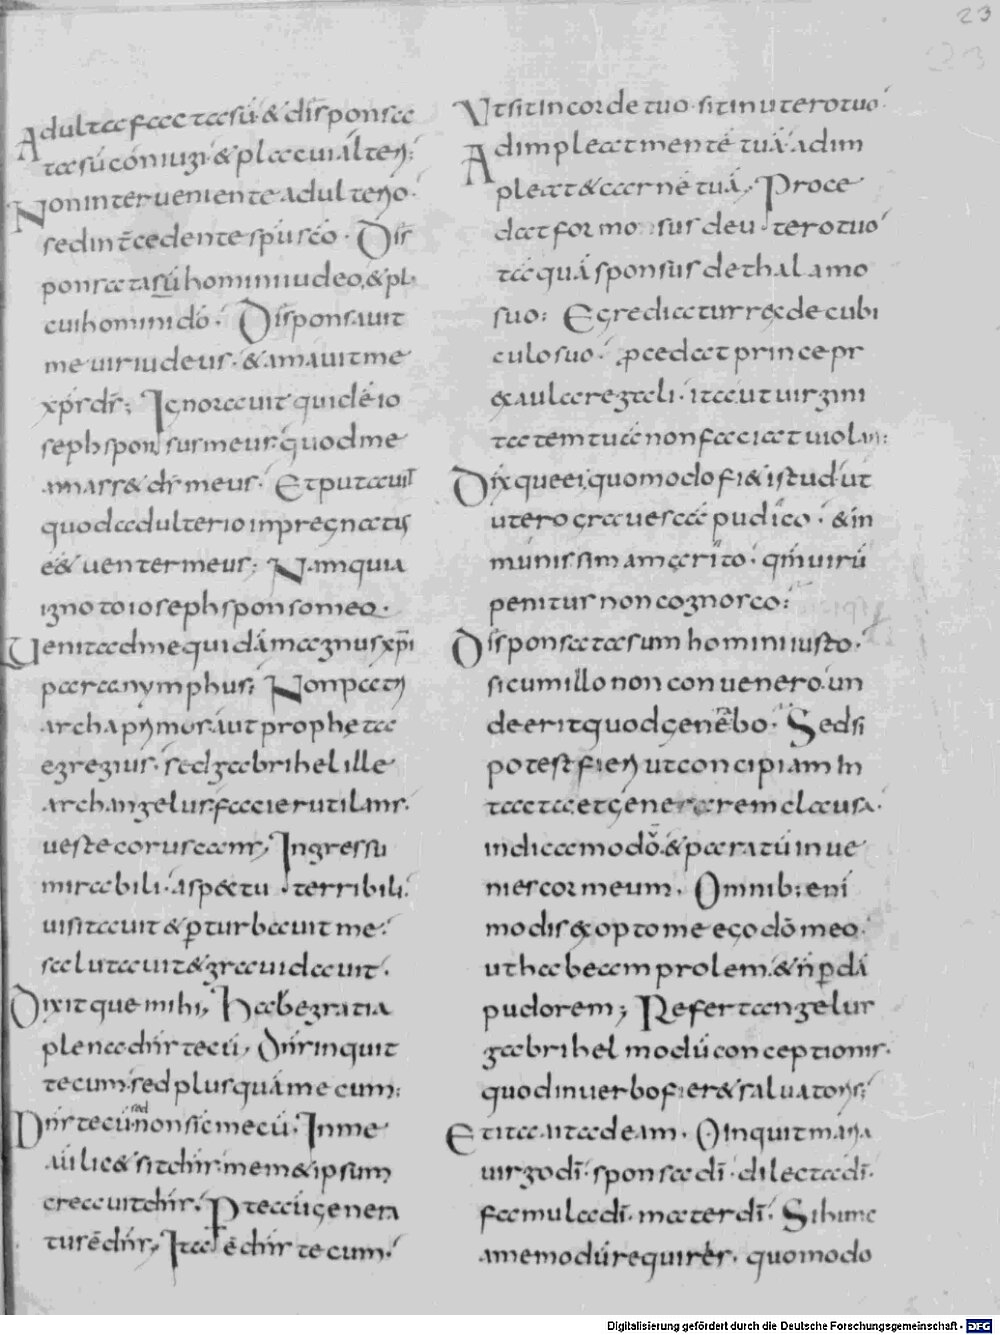 23
Adulta facta sū· & disponsa
ta sū coniugi· & placui alteri;
Non interueniente adulterio·
sed intcedente spū sco· Dis
ponsata sū homini iudeo, & pl
cui homini dō· Disponsauit
me uir iudeus· & amauit me
xp̄s ds; Ignorauit quidē io
seph sponsus meus· quod me
amass& ds meus· Et putauit
quod adulterio inpregnatus
ēē& uenter meus; Namquia
ignoto ioseph sponso meo·
Uenit ad me quidā magnus xp̄i
paranymphus; Non pat
archa primorauit propheta
egregius· sed gabrihel ille
archangelus· facie rutilans·
ueste coruscans, Ingressu
mirabili· aspectu terribili·
uisitauit & pturbauit me·
salutauit & grauidauit·
Dixitque mihi, Habe gratia
plena dns tecū, Dns inquit
tecum· sed plus quā mecum:
Dns tecū· sed non sic mecū· In me
licet sit dns· mem& ipsum
creauit dns· P te aū genera
tur ē dns, Ita ē dns tecum·
Ut sit in corde tuo· sit in utero tuo·
Adimpleat mentē tuā· adim
pleat & carnē tuā, Proce
dat formosus de utero tuo
tāquā sponsus de thalamo
suo: Egrediatur rex de cubi
culo suo· pcedat princeps
ex aula regali· ita ut uirgini
tatem tuā non faciat uiolari:
Dixque ei, quomodo fi& istud ut
utero grauescā pudico· & in
munissima me scito· qm̄ uirū
penitus non cognosco:
Disponsata sum homini iusto·
si cum illo non conuenero· un
de erit quod genēbo· Sed si
potest fieri ut concipiam in
tacta et generarem clausa·
indica modō· & paratū inue
nies cor meum, Omnib; eni
modis exopto me ego dōmeo
ut habeam prolem· & n pdā
pudorem; Refert angelus
gabrihel modū conceptionis·
quod in uerbo fier& saluatoris;
Et ita ait ad eam, O inquit maria
uirgo dī· sponsa dī· dilecta dī·
famula dī· mater dī· Si hunc
a me modū requiris· quomodo
Digitalisierung gefördert durch die Deutsche Forschungsgemeinschaft - DFG